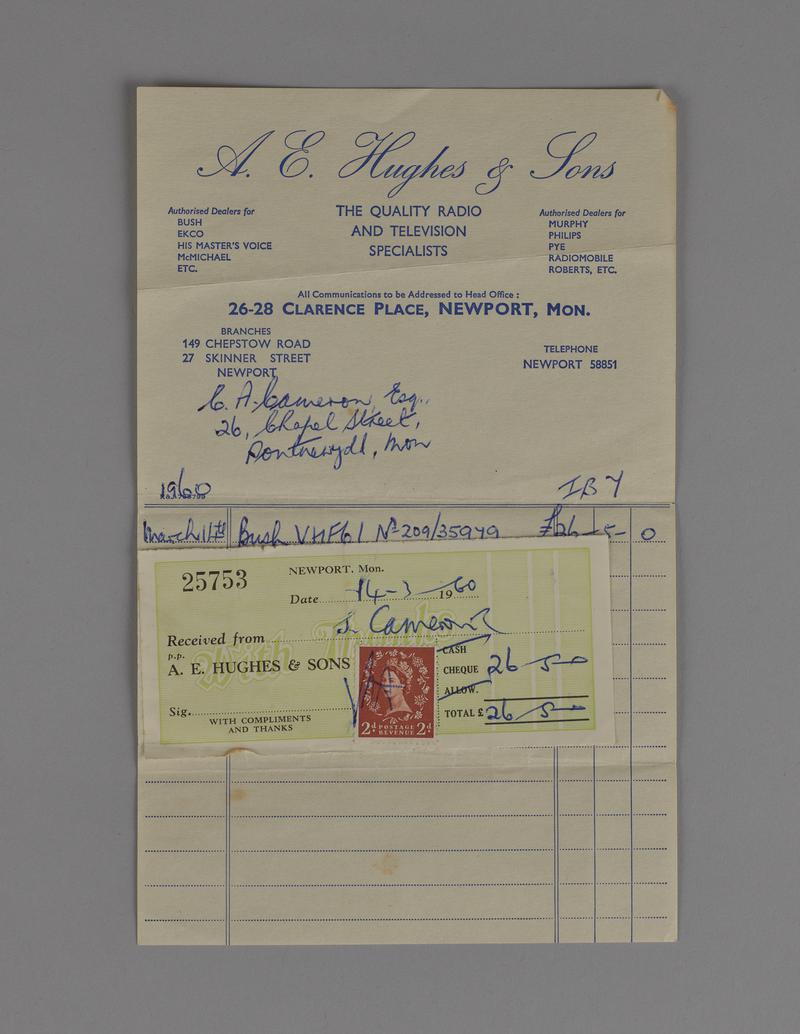 A. E. Hughes & Sons
Authorised Dealers for
BUSH
EKCO
HIS MASTER'S VOICE
McMICHAEL
ETC.
THE QUALITY RADIO
AND TELEVISION
SPECIALISTS
Authorised Dealers for
MURPHY
PHILIPS
PYE
RADIOMOBILE
ROBERTS, ETC.
All Communications to be Addressed to Head Office :
26-28 CLARENCE PLACE, NEWPORT, MON.
BRANCHES
149 CHEPSTOW ROAD
27 SKINNER STREET
NEWPORT
TELEPHONE
NEWPORT 58851
C. A. Cameron, Esq.,
26, Chapel Street,
Pontnewydd, Mon
1960
March 11th Bush VHF61 No 209/35979 £26-5-0
25753
NEWPORT, Mon.
Date 14-3-1960
With Thanks
Received from Cameron
p.p.
A. E. HUGHES & SONS
CASH
CHEQUE 26-5-0
ALLOW.
TOTAL £ 26-5-0
Sig.
WITH COMPLIMENTS
AND THANKS
2d POSTAGE 2d
REVENUE